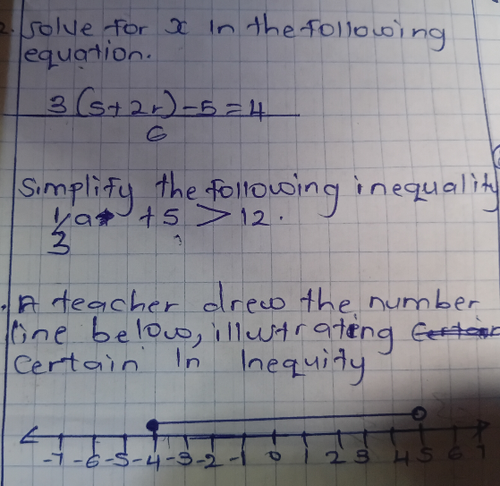 2. Solve for x in the following
equation.
3(5+2r)-5=4
6
Simplify the following inequality
1/3 a + 5 > 12.
. A teacher drew the number
line below, illustrating
certain in inequity
-7 -6 -5 -4 -3 -2 -1 0 1 2 3 4 5 6 7